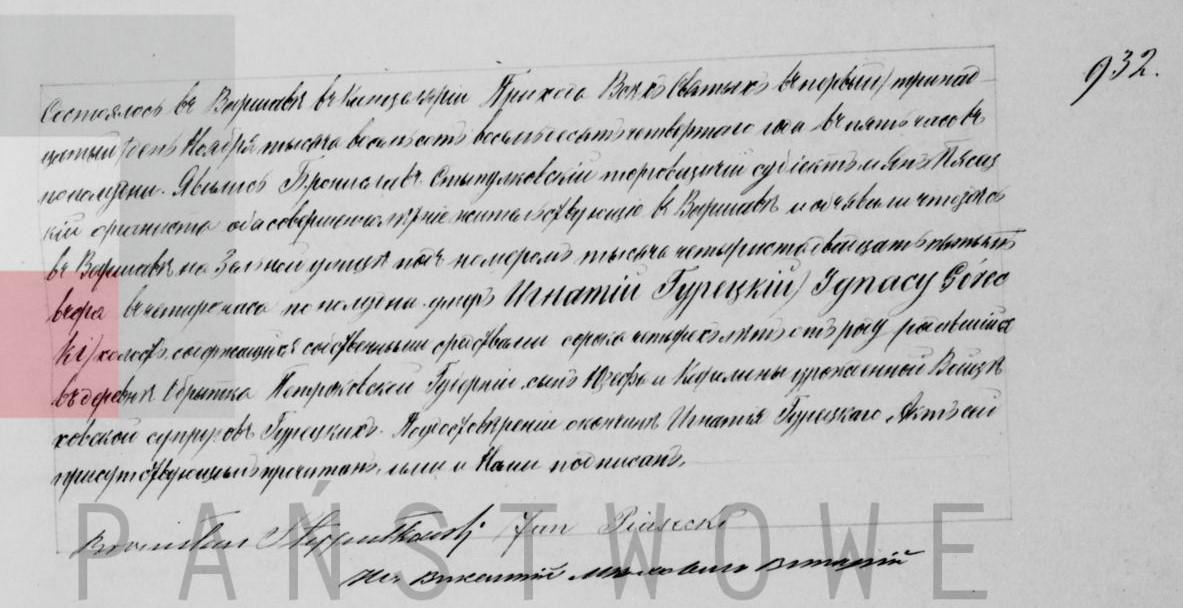 932.
Состоялось въ Варшавѣ въ Канцеляріи Прихода Всѣхъ Святыхъ въ первый / тринад-
цатый / день Ноября тысяча восемьсотъ восемьдесятъ четвертаго года въ пять часовъ
пополудни. Явились Брониславъ Стыпулковскій торговый субіектъ и Янъ Пясец
кій органиста оба совершеннолѣтніе жительствующіе въ Варшавѣ и объявили что здѣсь
въ Варшавѣ на улицѣ подъ номеромъ тысяча четыриста двадцать
въ четыре часа пополудни умеръ Игнатій Гурецкій / Ignacy Górec
ki / холостъ содержащійся собственными средствами сорока четырехъ лѣтъ отъ роду родившійся
въ деревнѣ Петроковской Губерніи, сынъ Юзефа и урожденной Войцѣ
ховской супруговъ Гурецкихъ. По удостовѣреніи о кончинѣ Игнатія Гурецкаго, Актъ сей
присутствующимъ прочитанъ, ими и Нами подписанъ.
Bronisław Stypułkowski Jan Piasecki
PAŃSTWOWE